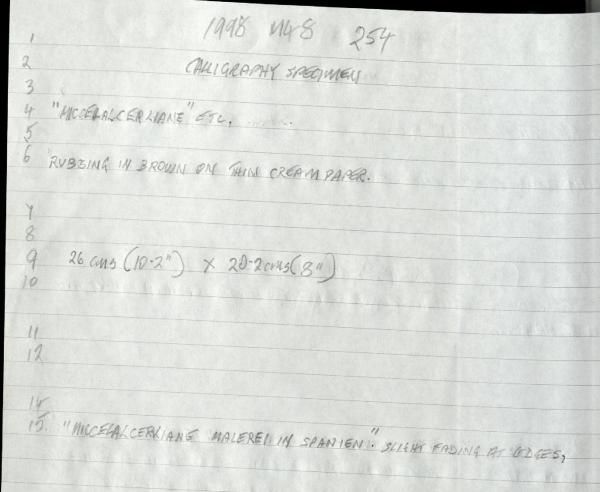 1998 M48 254
1
2 CALLIGRAPHY SPECIMEN
3
4 "MICCEFALCERLIANE" ETC. ........
5
6 RUBBING IN BROWN ON THIN CREAM PAPER.
7
8
9 26 cms (10-2") x 20-2cms (8")
10
11
12
14
15. "MICCEFALCERLIANE MALEREI IN SPANIEN". SLIGHT FADING AT EDGES,